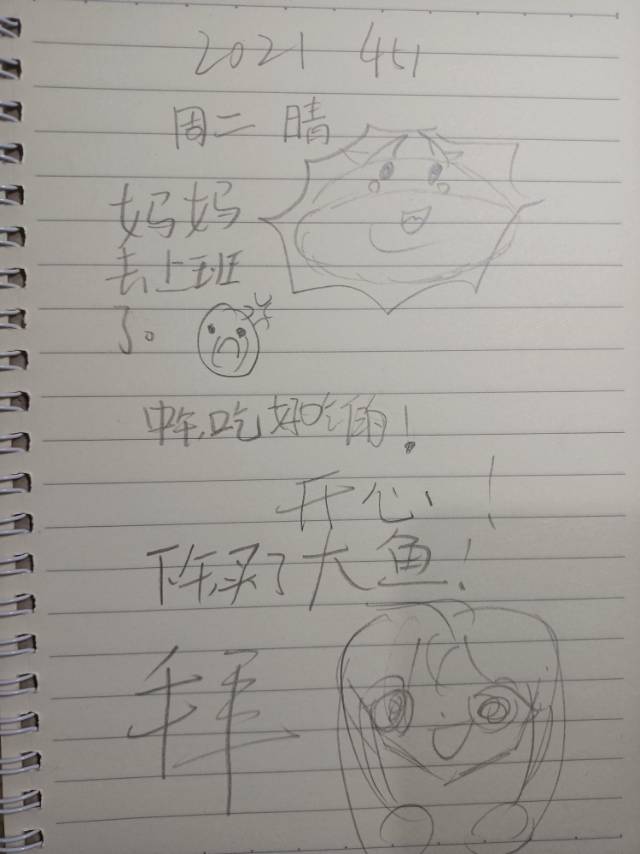 2021
周二 晴
妈妈
去上班
了。
中午,吃好吃的!
开心!
下午,买了大鱼!
拜